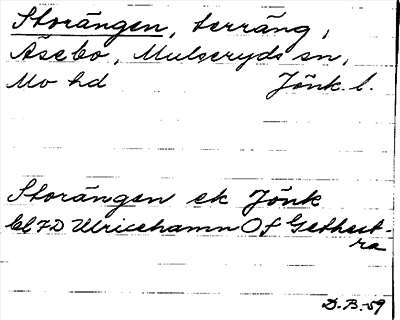 Storängen, terräng,
Åsebo, Mulseryds sn,
Mo hd Jönk. l.
Storängen ek Jönk
bl 7D Ulricehamn Of Gethest-
ra
D.B.-59